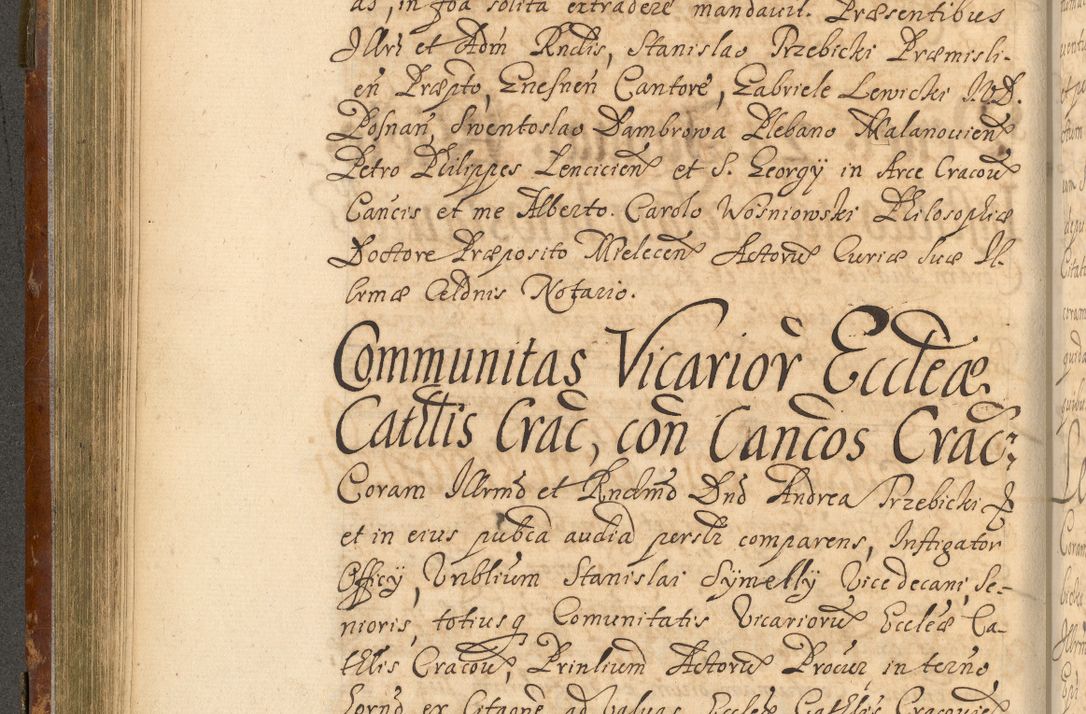 as, in foa solita extradere mandavit. Præsentibus
Illri et Adm Rndis, Stanislao Przebicki Præmisli-
en Præpto, Gnesnen Cantore, Gabriele Lewicki I.V.D.
Posnan, Swentoslao Dambrowa Plebano Malanovien
Petro Philippes Lencicien et S. Georgy in Arce Cracov
Cancis et me Alberto. Carolo Wosniowski Philosophiæ
Doctore Præposito Mielecen Actoru Curiæ Suæ Il-
lrmæ Celdnis Notario.
Communitas Vicarior Eccleæ
Cathlis Crac, con Cancos Crac:
Coram Illrmo et Rndmo Dno Andrea Przebicki
et in eius pubca audia persr comparens, Instigator
Officy, Vnblium Stanislai Symelly Vicedecani, Se-
nioris, totiusq Comunitatis Vicarioru Eccleæ Ca-
thlis Cracov, Prinlium Actoru Procur in terno,
Cathlis Cracovien